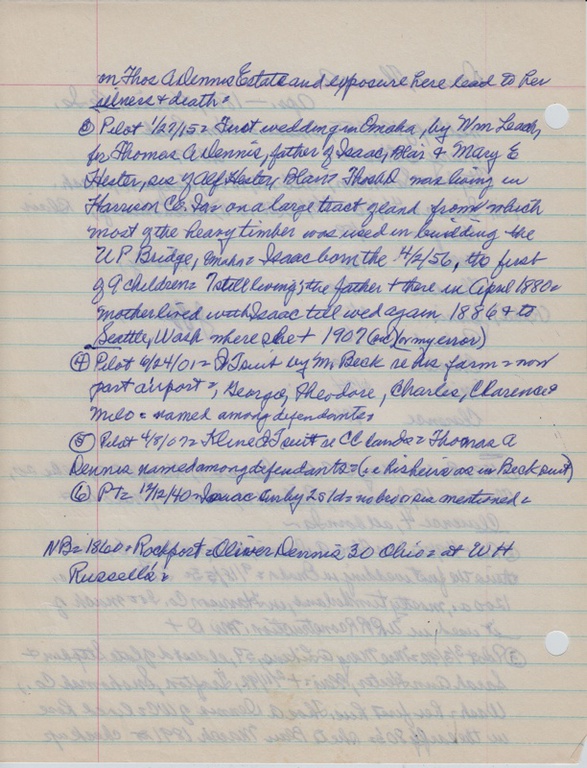 on Thos A Dennis Estate and exposure here lead to her
illness & death =
③ Pilot 1/27/15 = First wedding in Omaha, by Wm Leach,
for Thomas A Dennis, father of Isaac, Blair & Mary E
Hester, sis of Alf Hester, Blair = Thos A D now living in
Harrison Co. Ia = on a large tract of land from which
most of the heavy timber was used in building the
U P Bridge, Omaha = Isaac born the 4/2/56, the first
of 9 children = 7 still living; the father + there in April 1880 =
mother lived with Isaac till wed again 1886 & to
Seattle, Wash where she + 1907 (or my error)
④ Pilot 6/24/01 = Q T suit by M. Beck re his farm = now
part airport =, George, Theodore, Charles, Clarence &
Milo = named among defendants =
⑤ Pilot 4/8/07 = Kline Q T suit re CC lands = Thomas A
Dennis named among defendants = (ie his heirs as in Beck suit)
⑥ PT = 12/12/40 = Isaac = no sis mentioned =
NB = 1860 = Rockport = Oliver Dennis 30 Ohio = at W H
Russell's =